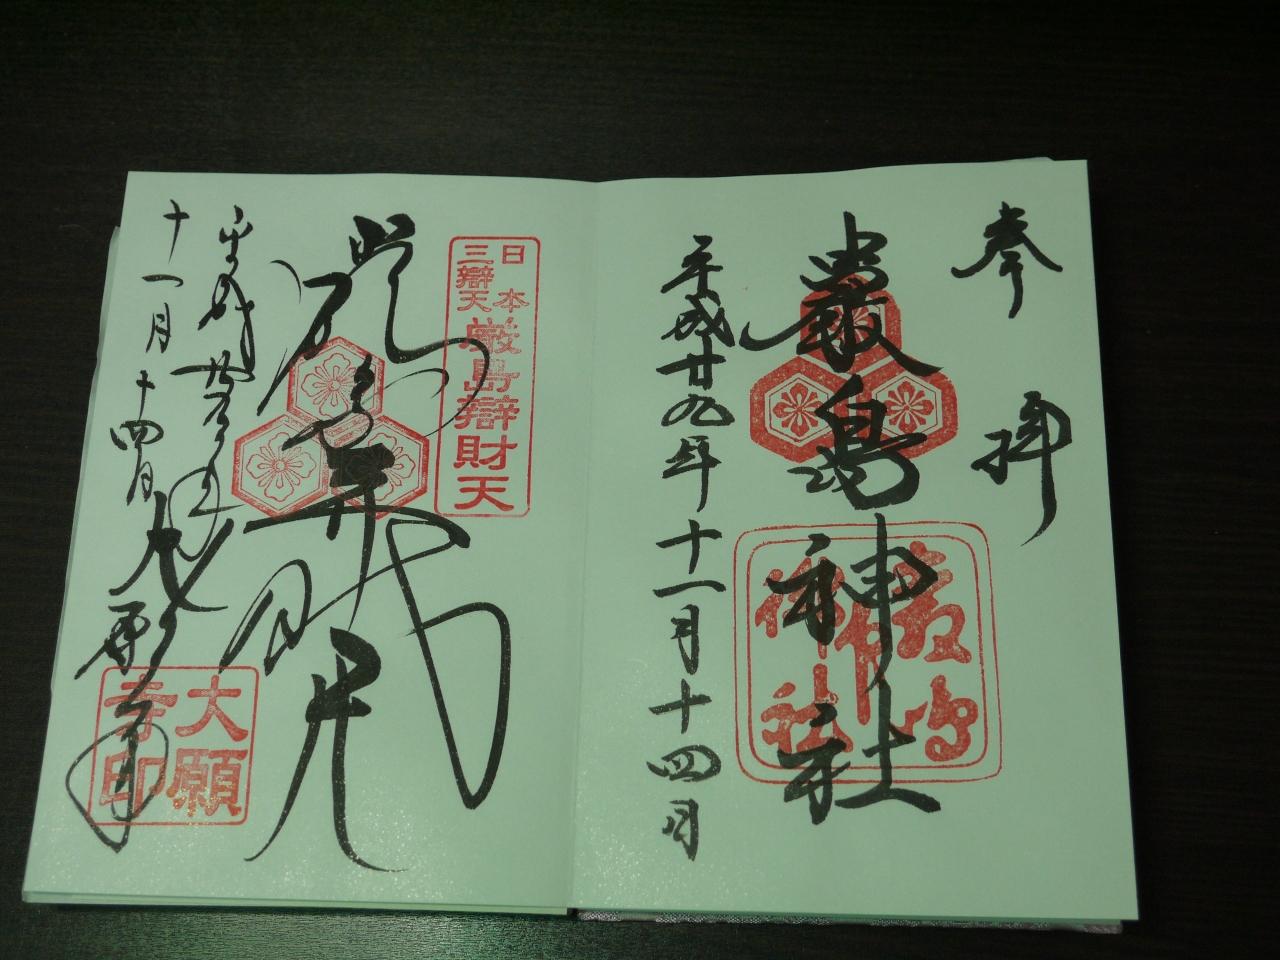 奉拝
嚴島神社
平成廿九年十一月十四日
日本三辯天
厳島辯財天
厳島弁財天
平成廿九年
十一月十四日
大願寺印